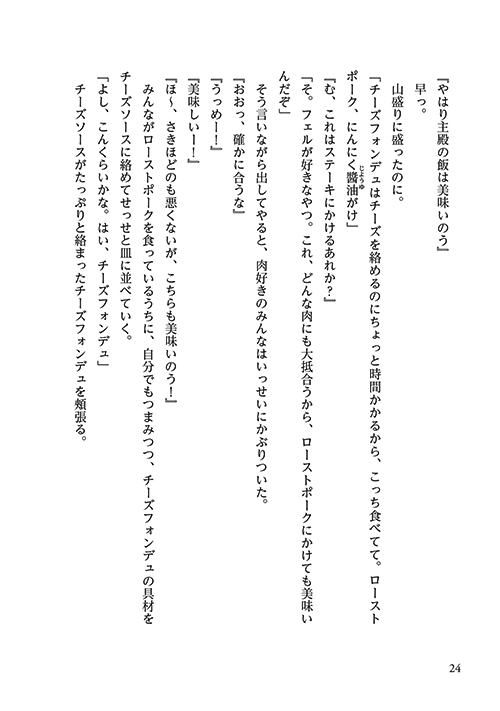 『やはり主殿の飯は美味いのう』
早っ。
山盛りに盛ったのに。
「チーズフォンデュはチーズを絡めるのにちょっと時間かかるから、こっち食べてて。ロースト
ポーク、にんにく醬油がけ」
じょうゆ
『む、これはステーキにかけるあれか？』
「そ。フェルが好きなやつ。これ、どんな肉にも大抵合うから、ローストポークにかけても美味い
んだぞ」
そう言いながら出してやると、肉好きのみんなはいっせいにかぶりついた。
『おおっ、確かに合うな』
『うっめー！』
『美味しいー！』
『ほ～、さきほどのも悪くないが、こちらも美味いのう！』
みんながローストポークを食っているうちに、自分でもつまみつつ、チーズフォンデュの具材を
チーズソースに絡めてせっせと皿に並べていく。
「よし、こんくらいかな。はい、チーズフォンデュ」
チーズソースがたっぷりと絡まったチーズフォンデュを頰張る。
24